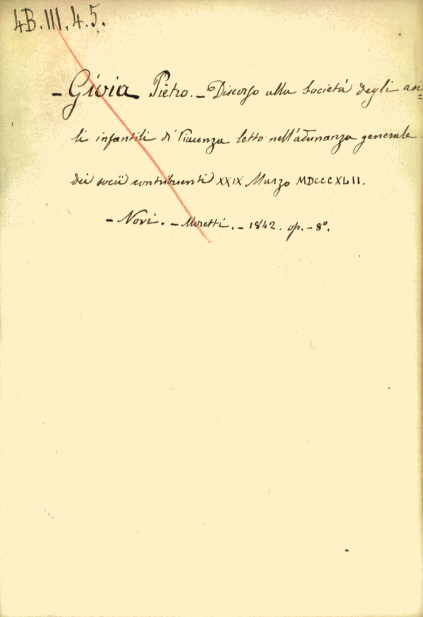 4B.III.4.5.
- Gioia Pietro. - Discorso alla Società degli asi-
li infantili di Piacenza letto nell'adunanza generale
dei socii contribuenti XXIX Marzo MDCCCXLII.
- Novi. - Moretti. - 1842. op. - 8º.